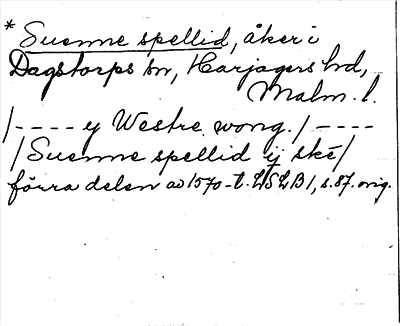 * Suenne spellid, åker i
Dagstorps sn, Harjagers hd,
Malm. l.
/---- y Westre wong. / ----
/ Suenne spellid ij ske /
förra delen av 1570-t. LSLB1, s. 87. orig.